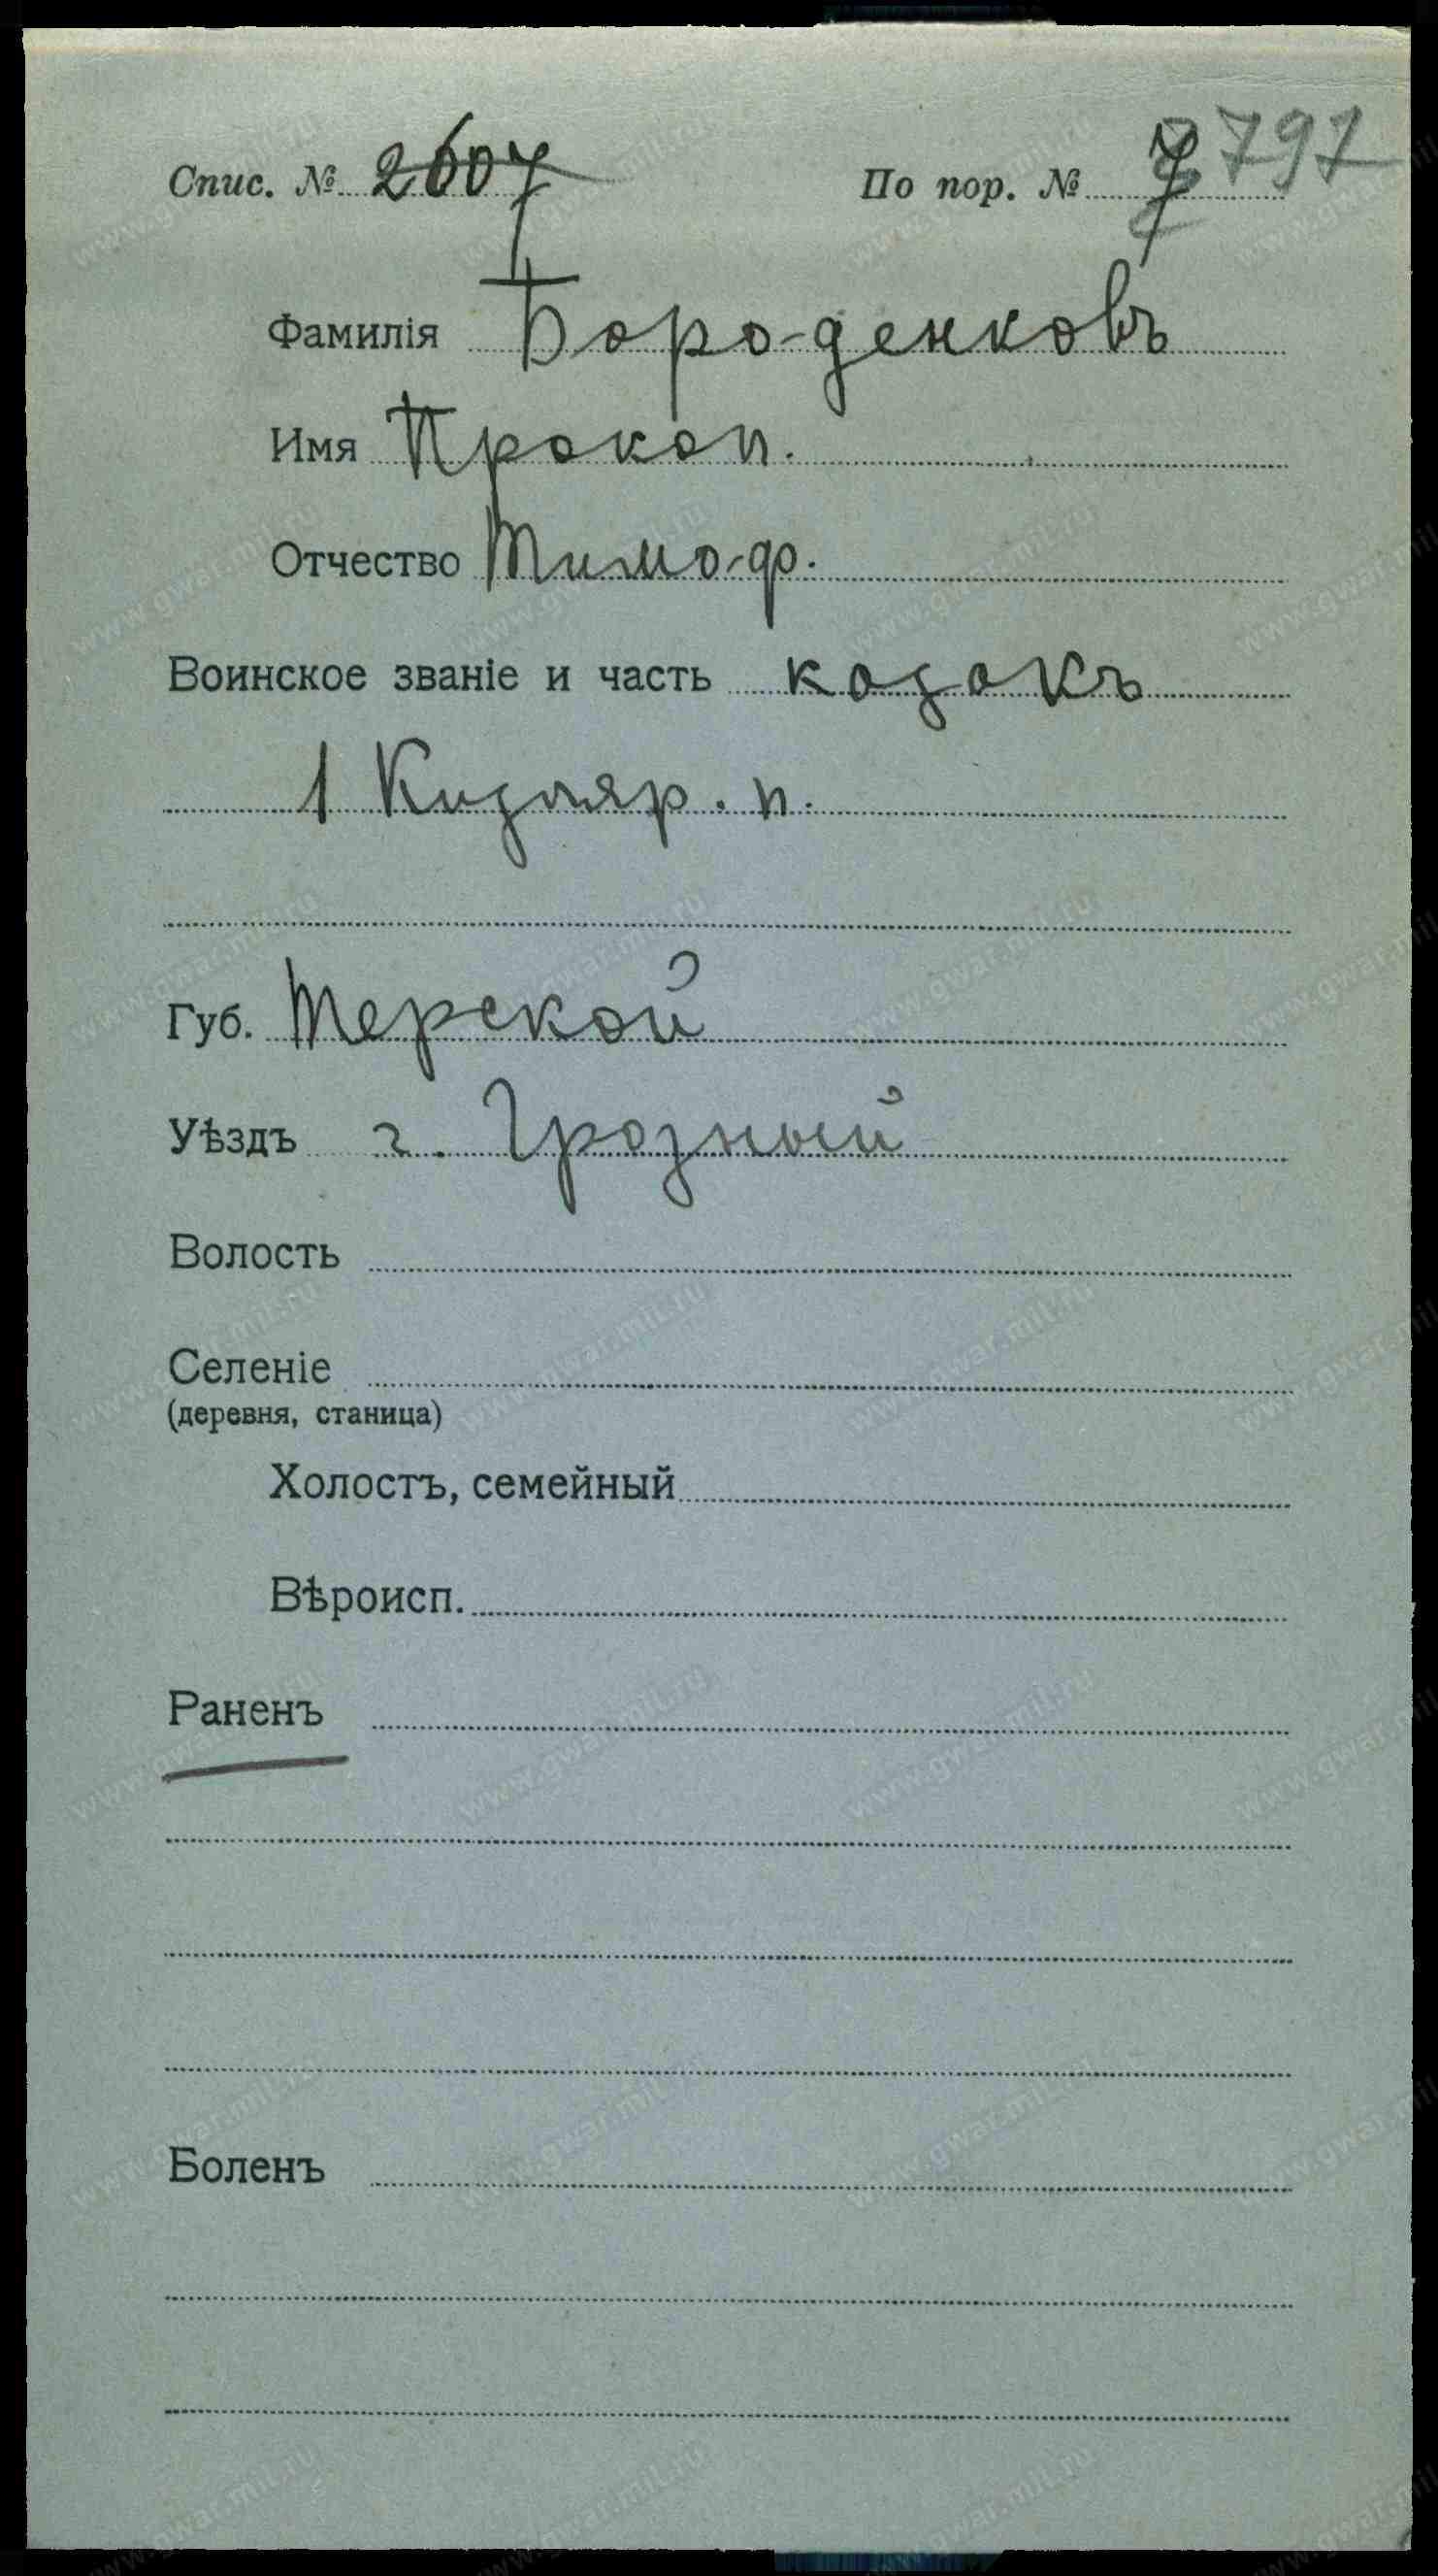 Спис. № 2607 По пор. № 7 797
Фамилія Бороденковъ
Имя Прокоп.
Отчество Тимоф.
Воинское званіе и часть козакъ
1 Кизляр. п.
Губ. Терской
Уѣздъ г. Грозный
Волость
Селеніе
(деревня, станица)
Холостъ, семейный
Вѣроисп.
Раненъ
Боленъ